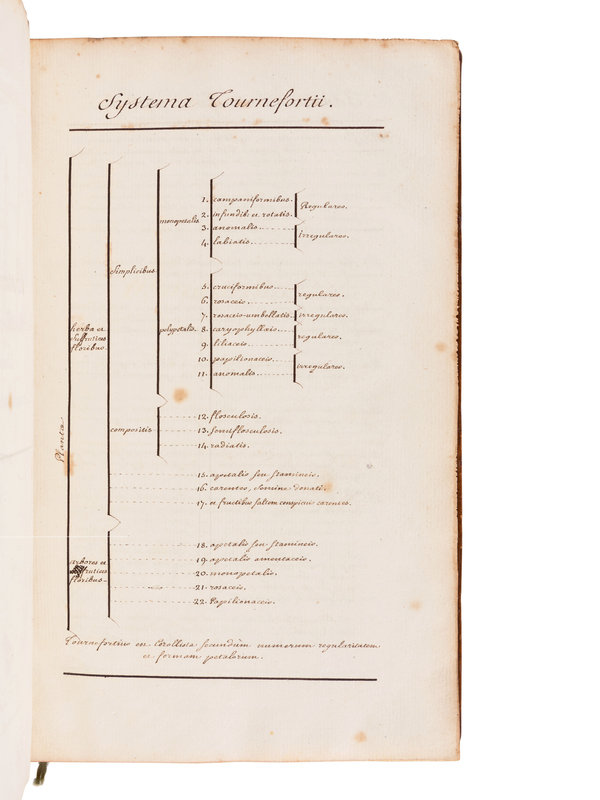 Systema Tournefortii.
Planta
herba et
suffrutices
floribus.
Simplicibus
monopetalis.
1. campaniformibus.
2. infundib: et rotatis.
Regulares.
3. anomalis
4. labiatis
irregulares.
polypetalis.
5. cruciformibus
6. rosaceis
regulares.
7. rosaceis-umbellatis
irregulares.
8. caryophylleis
9. liliaceis
regulares.
10. papilionaceis
11. anomalis
irregulares.
compositis
12. flosculosis.
13. semiflosculosis.
14. radiatis.
15. apetalis seu stamineis.
16. carentes, semine donati.
17. et fructibus saltem conspicuis carentes.
arbores et
frutices
floribus
18. apetalis seu stamineis.
19. apetalis amentaceis.
20. monopetalis.
21. rosaceis.
22. Papilionaceis.
Tournefortius en Corollista secundum numerum regularitatem
et formam petalorum.